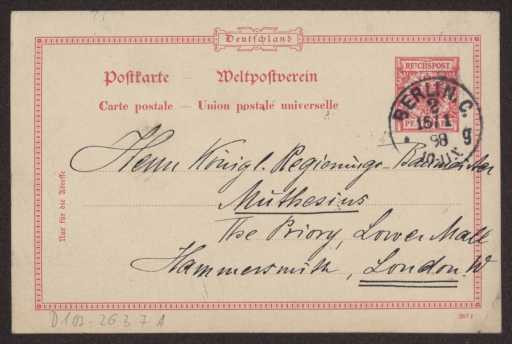 Deutschland
Postkarte — Weltpostverein
Carte postale — Union postale universelle
REICHSPOST
BERLIN. C.
2
15 11
98
g
Nur für die Adresse
Herrn Königl. Regierungs-Baumeister
Muthesius
The Priory, Lower Mall
Hammersmith, London W
D102-26 3 7 A